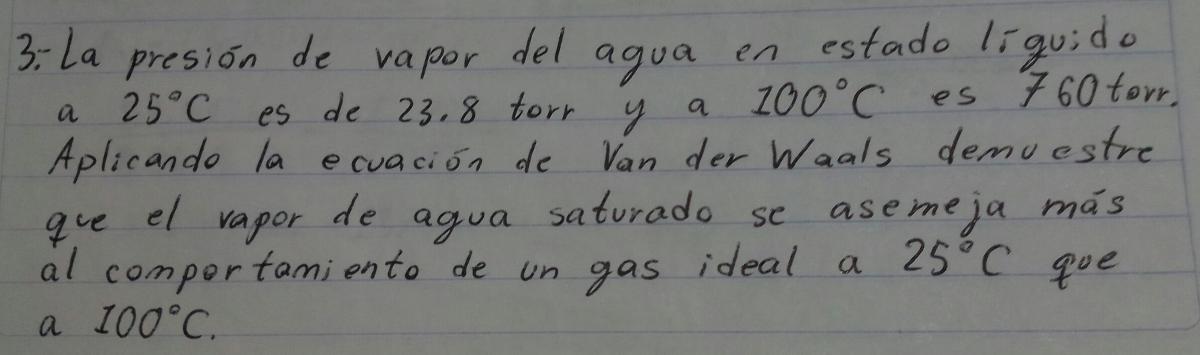 3.- La presión de vapor del agua en estado líquido
a 25°C es de 23.8 torr y a 100°C es 760 torr.
Aplicando la ecuación de Van der Waals demuestre
que el vapor de agua saturado se asemeja más
al comportamiento de un gas ideal a 25°C que
a 100°C.